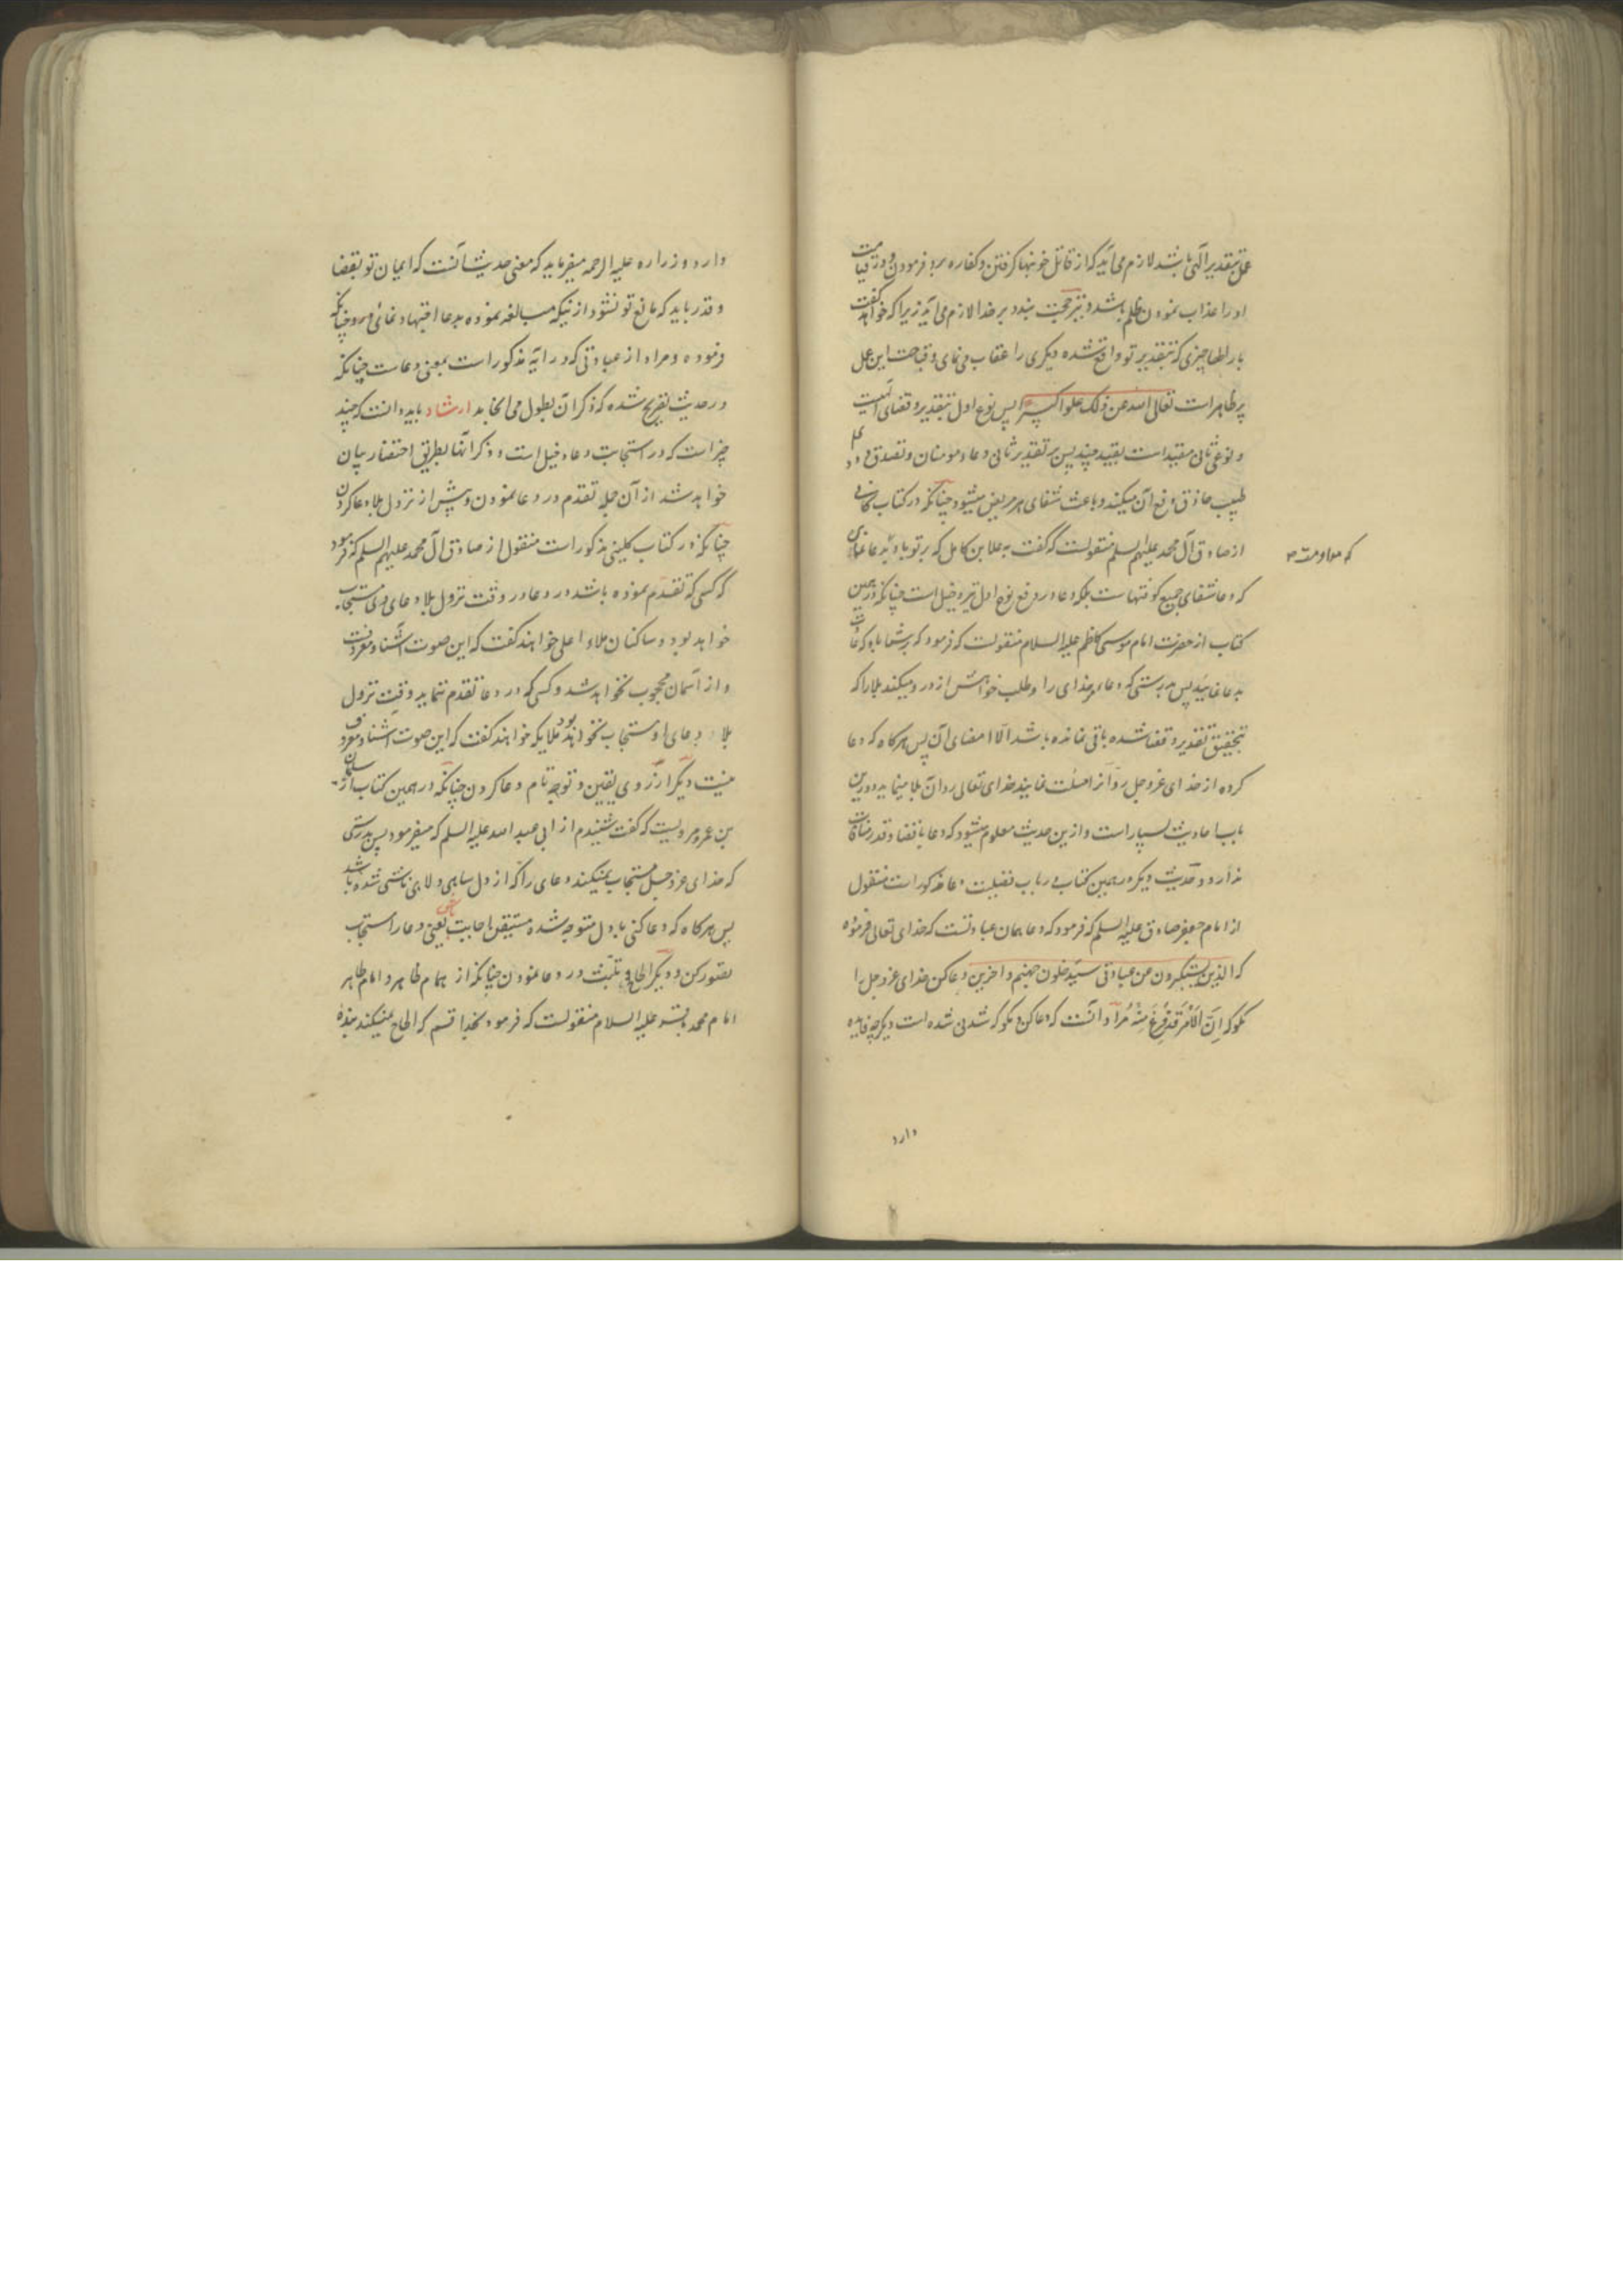 عمل بتقدیر الهی باشد لازم می آید که از قاتل خونبها گرفتن و کفاره برو فرمودن و در قیامت
او را عذاب نمودن ظلم باشد و نیز حجت بنده بر خدا لازم می آید زیرا که خواهد گفت
بار الها چیزی که بتقدیر تو واقع شده دیگری را عقاب می نمای و قباحت این عمل
پر ظاهر است تعالی الله عن ذلک علوا کبیرا پس نوع اول بتقدیر و قضای
و نوع ثانی مقید است بقید چند پس بر تقدیر ثانی دعاء مومنان و تصدق و
طبیب حاذق دفع آن میکند و باعث شفای هر مریض میشود چنانکه در کتاب کافی
از صادق آل محمد علیهم السلم منقولست که گفت به علا بن کامل که بر تو باد به دعا
که دعا شفای جمیع کوفتهاست بلکه دعا در دفع نوع اول نیز دخیل است چنانکه در همین
کتاب از حضرت امام موسی کاظم علیه السلام منقولست که فرمود که بر شما باد که
به دعا نمایید پس بدرستی که دعاء خدای را و طلب خواهش ازو رد میکند بلا را که
بتحقیق تقدیر و قضا شده باقی نمانده باشد الا امضای آن پس هرگاه که دعا
کرده از خدای عزوجل رد آنرا مسئلت نمایند خدای تعالی رد آن بلا مینماید و درین
باب احادیث بسیار است و ازین حدیث معلوم میشود که دعا با قضا و قدر منافات
ندارد و حدیث دیگر در همین کتاب در باب فضیلت دعا مذکور است منقول
از امام جعفر صادق علیه السلم که فرمود که دعا همان عبادتست که خدای تعالی فرموده
که الذین یستکبرون عن عبادتی سیدخلون جهنم داخرین دعا کن خدای عزوجل را
مگو که اِنَّ الاَمْرَ قَدْ فُرِغَ مِنْهُ مراد آنست که دعا کن و مگو که شدنی شده است دیگر چه فایده
دارد
دارد و زراره علیه الرحمه میفرماید که معنی حدیث آنست که ایمان تو بقضا
و قدر باید که مانع تو نشود از نیکه مبالغه نموده بدعا اجتهاد نمائی در و چنانکه
فرموده و مراد از عبادتی که در آیه مذکور است بمعنی دعاست چنانکه
در حدیث تصریح شده که ذکر آن بطول می انجامد ارشاد باید دانست که چند
چیز است که در استجابت دعا دخیل است و ذکر آنها بطریق اختصار بیان
خواهد شد از آن جمله تقدم در دعا نمودن و پیش از نزول بلا دعا کردن
چنانکه در کتاب کلینی مذکور است منقول از صادق آل محمد علیهم السلم که فرمود
که کسی که تقدم نموده باشد در دعا در وقت نزول بلا دعای او مستجاب
خواهد بود و ساکنان ملاء اعلی خواهند گفت که این صوت آشنا و معروفست
و از آسمان محجوب نخواهد شد و کسی که در دعا تقدم ننماید وقت نزول
بلا دعای او مستجاب نخواهد بود ملایکه خواهند گفت که این صوت آشنا و معروف
نیست دیگر از روی یقین و توجه تام دعا کردن چنانکه در همین کتاب از سلیمان
بن عمرو مرویست که گفت شنیدم از ابی عبد الله علیه السلم که میفرمود پس بدرستی
که خدای عزوجل مستجاب نمیکند دعای را که از دل ساهی و لاهی ناشی شده باشد
پس هرگاه که دعا کنی با دل متوجه شده متیقن اجابت باش یعنی دعا را مستجاب
تصور کن و دیگر الحاح و تلبث در دعا نمودن چنانکه از همام طاهر و امام ظاهر
امام محمد باقر علیه السلام منقولست که فرمود بخدا قسم که الحاح نمیکند بنده